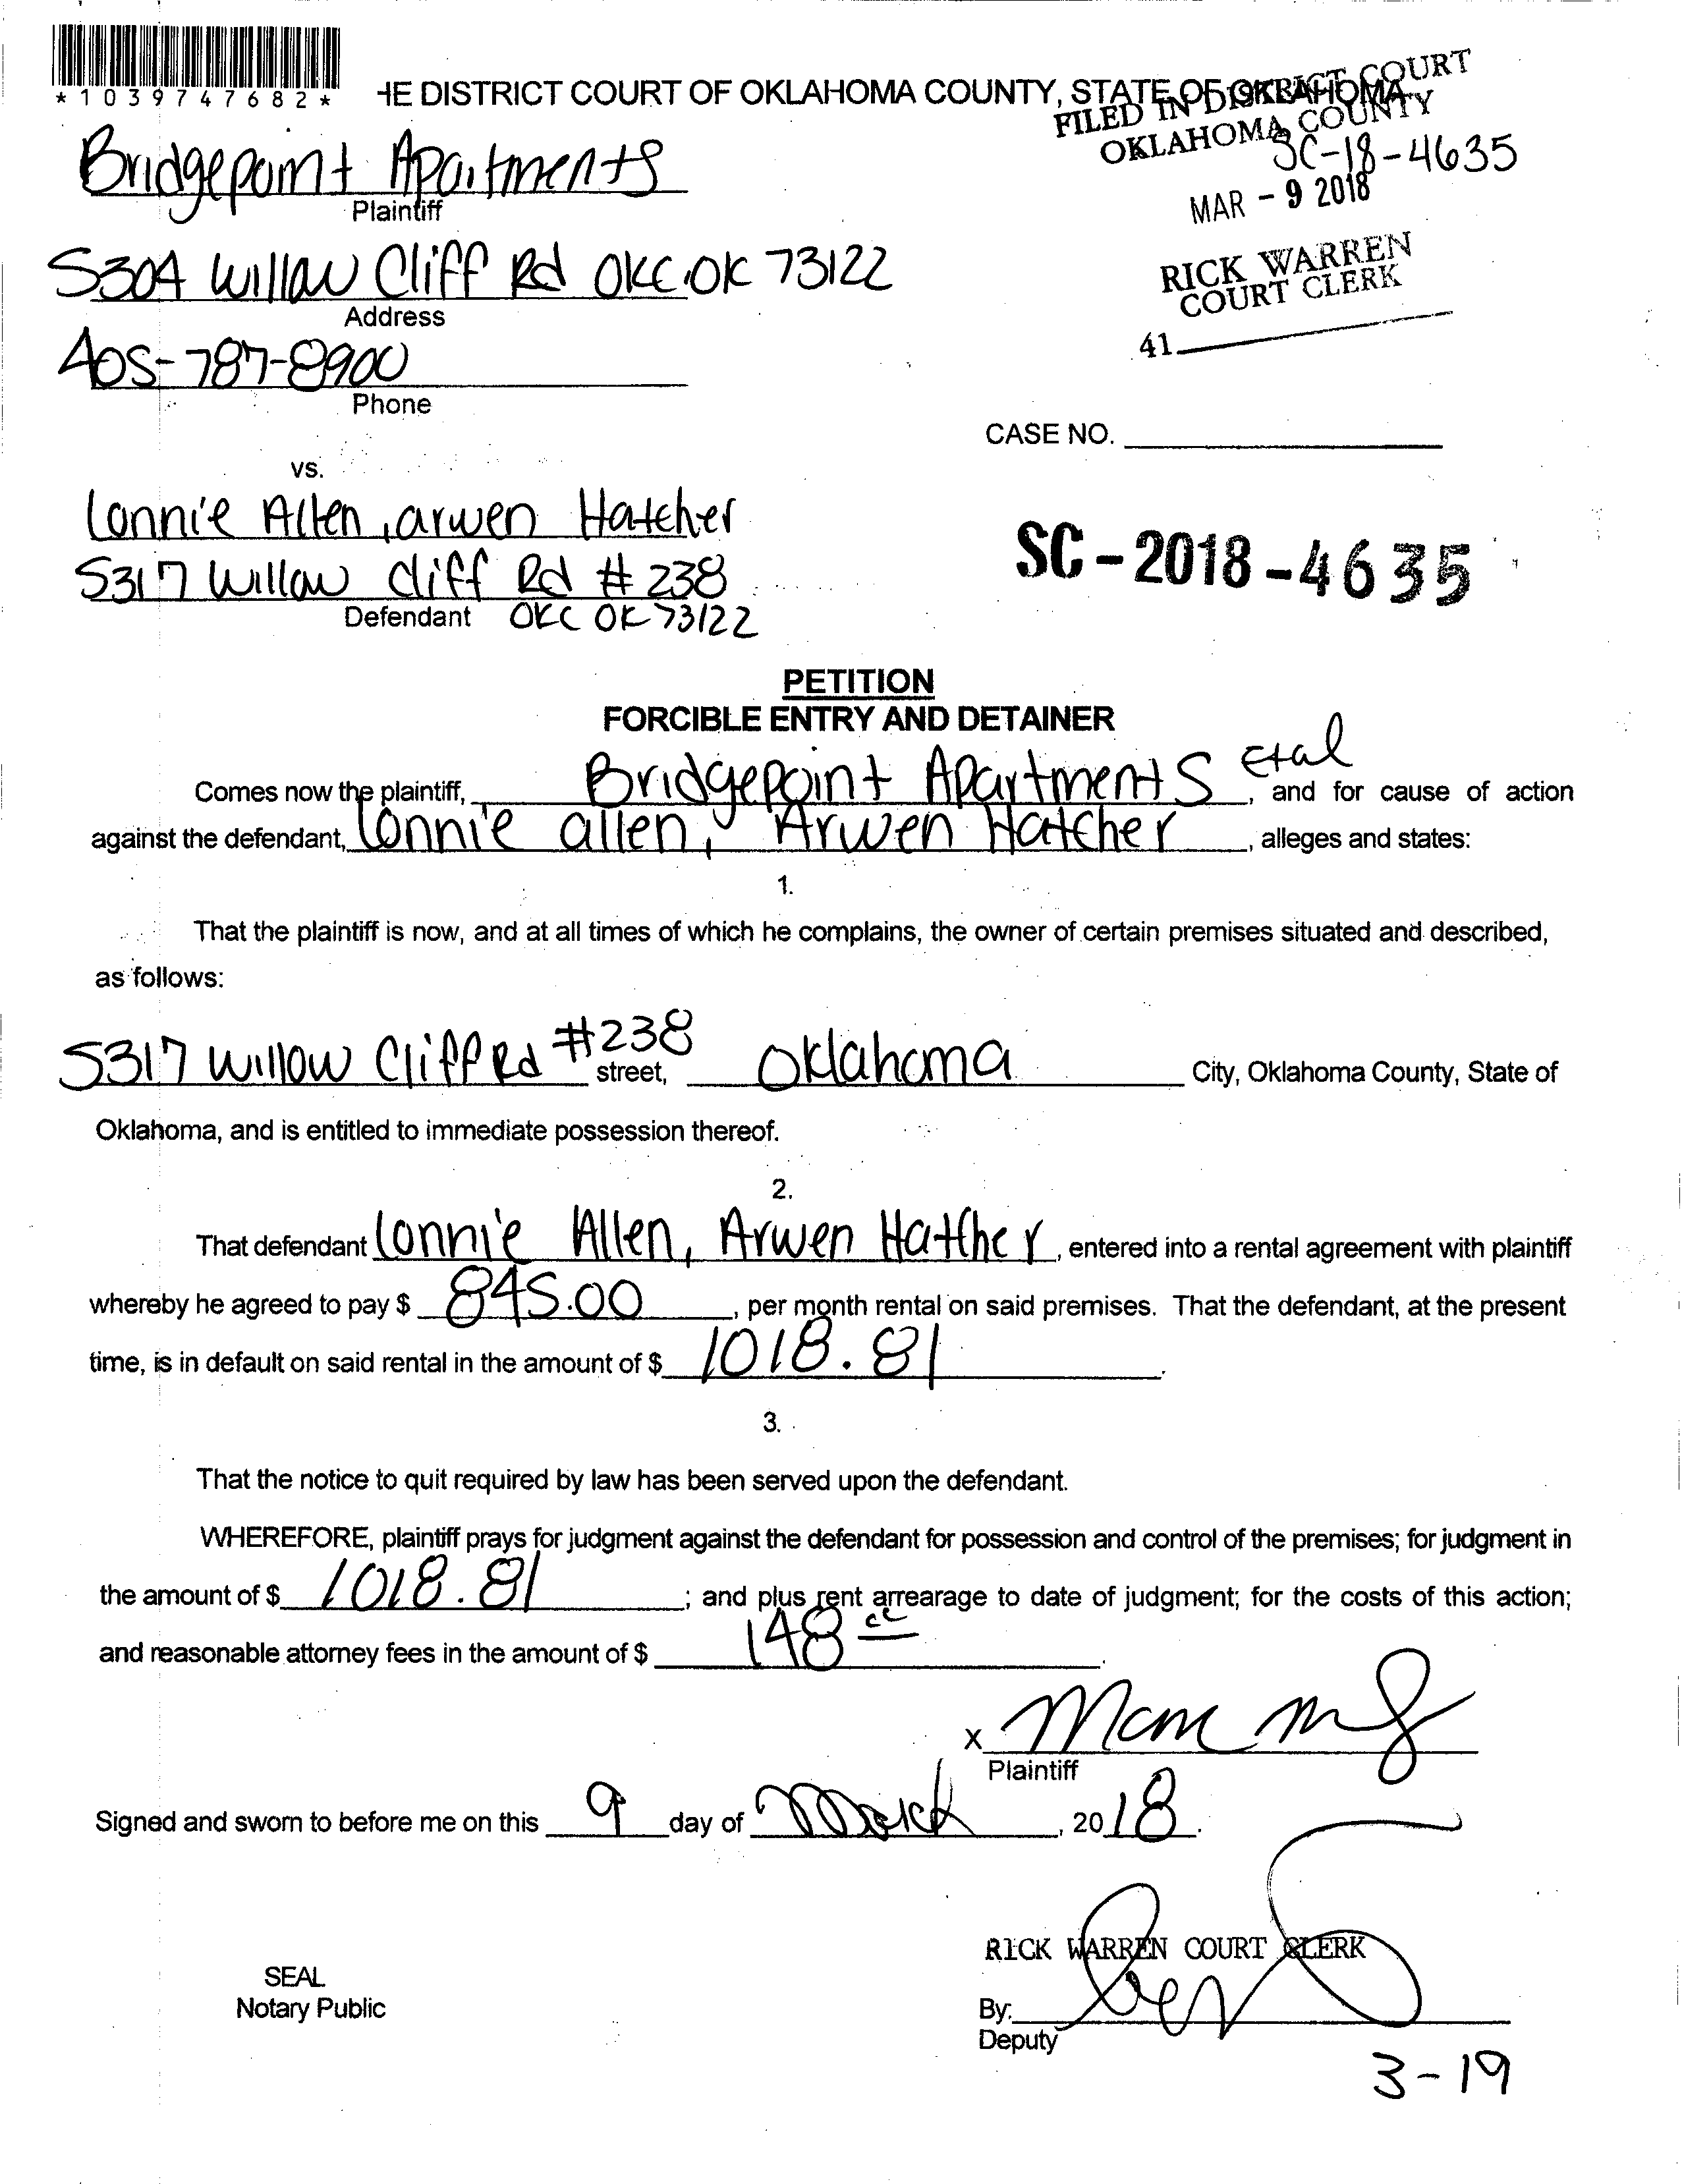 *1039747682*
HE DISTRICT COURT OF OKLAHOMA COUNTY, STATE OF OKLAHOMA
FILED IN DISTRICT COURT
OKLAHOMA COUNTY
SC-18-4635
MAR - 9 2018
RICK WARREN
COURT CLERK
41
Bridgepoint Apartments
Plaintiff
5304 Willow Cliff Rd OKC, OK 73122
Address
405-787-8900
Phone
CASE NO.
vs.
Lonnie Allen, arwen Hatcher
5317 Willow Cliff Rd # 238
Defendant OKC OK 73122
SC-2018-4635
PETITION
FORCIBLE ENTRY AND DETAINER
Comes now the plaintiff, Bridgepoint Apartments Etal, and for cause of action
against the defendant, Lonnie allen, Arwen Hatcher, alleges and states:
1.
That the plaintiff is now, and at all times of which he complains, the owner of certain premises situated and described,
as follows:
5317 Willow Cliff Rd #238 street, Oklahoma City, Oklahoma County, State of
Oklahoma, and is entitled to immediate possession thereof.
2.
That defendant Lonnie Allen, Arwen Hatcher, entered into a rental agreement with plaintiff
whereby he agreed to pay $ 845.00, per month rental on said premises. That the defendant, at the present
time, is in default on said rental in the amount of $ 1018.81.
3.
That the notice to quit required by law has been served upon the defendant.
WHEREFORE, plaintiff prays for judgment against the defendant for possession and control of the premises; for judgment in
the amount of $ 1018.81; and plus rent arrearage to date of judgment; for the costs of this action;
and reasonable attorney fees in the amount of $ 148.
X
Plaintiff
Signed and sworn to before me on this 9 day of March, 2018.
RICK WARREN COURT CLERK
SEAL
Notary Public
By:
Deputy
3-19